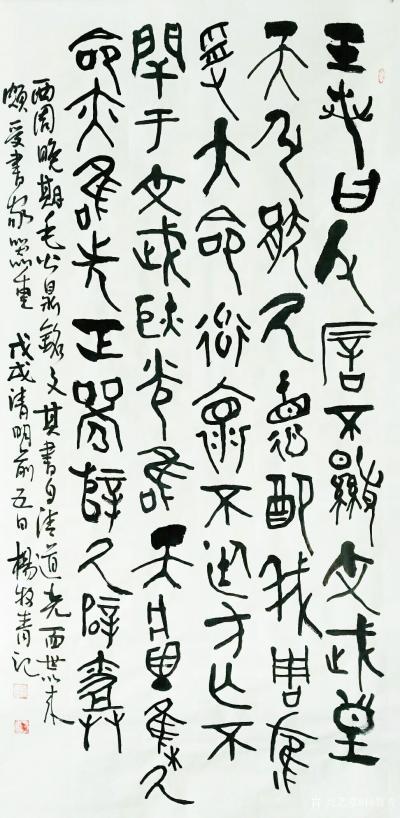 王若曰父厝不顯文武皇
天引猒氒德配我周膺
受大命率懷不廷方亡不
閈于文武耿光唯天將集氒
命亦唯先正襄辥氒辟
西周晚期毛公鼎銘文其書自清道光面世以来
頗受書家器重 戊戌清明前五日 楊牧青记